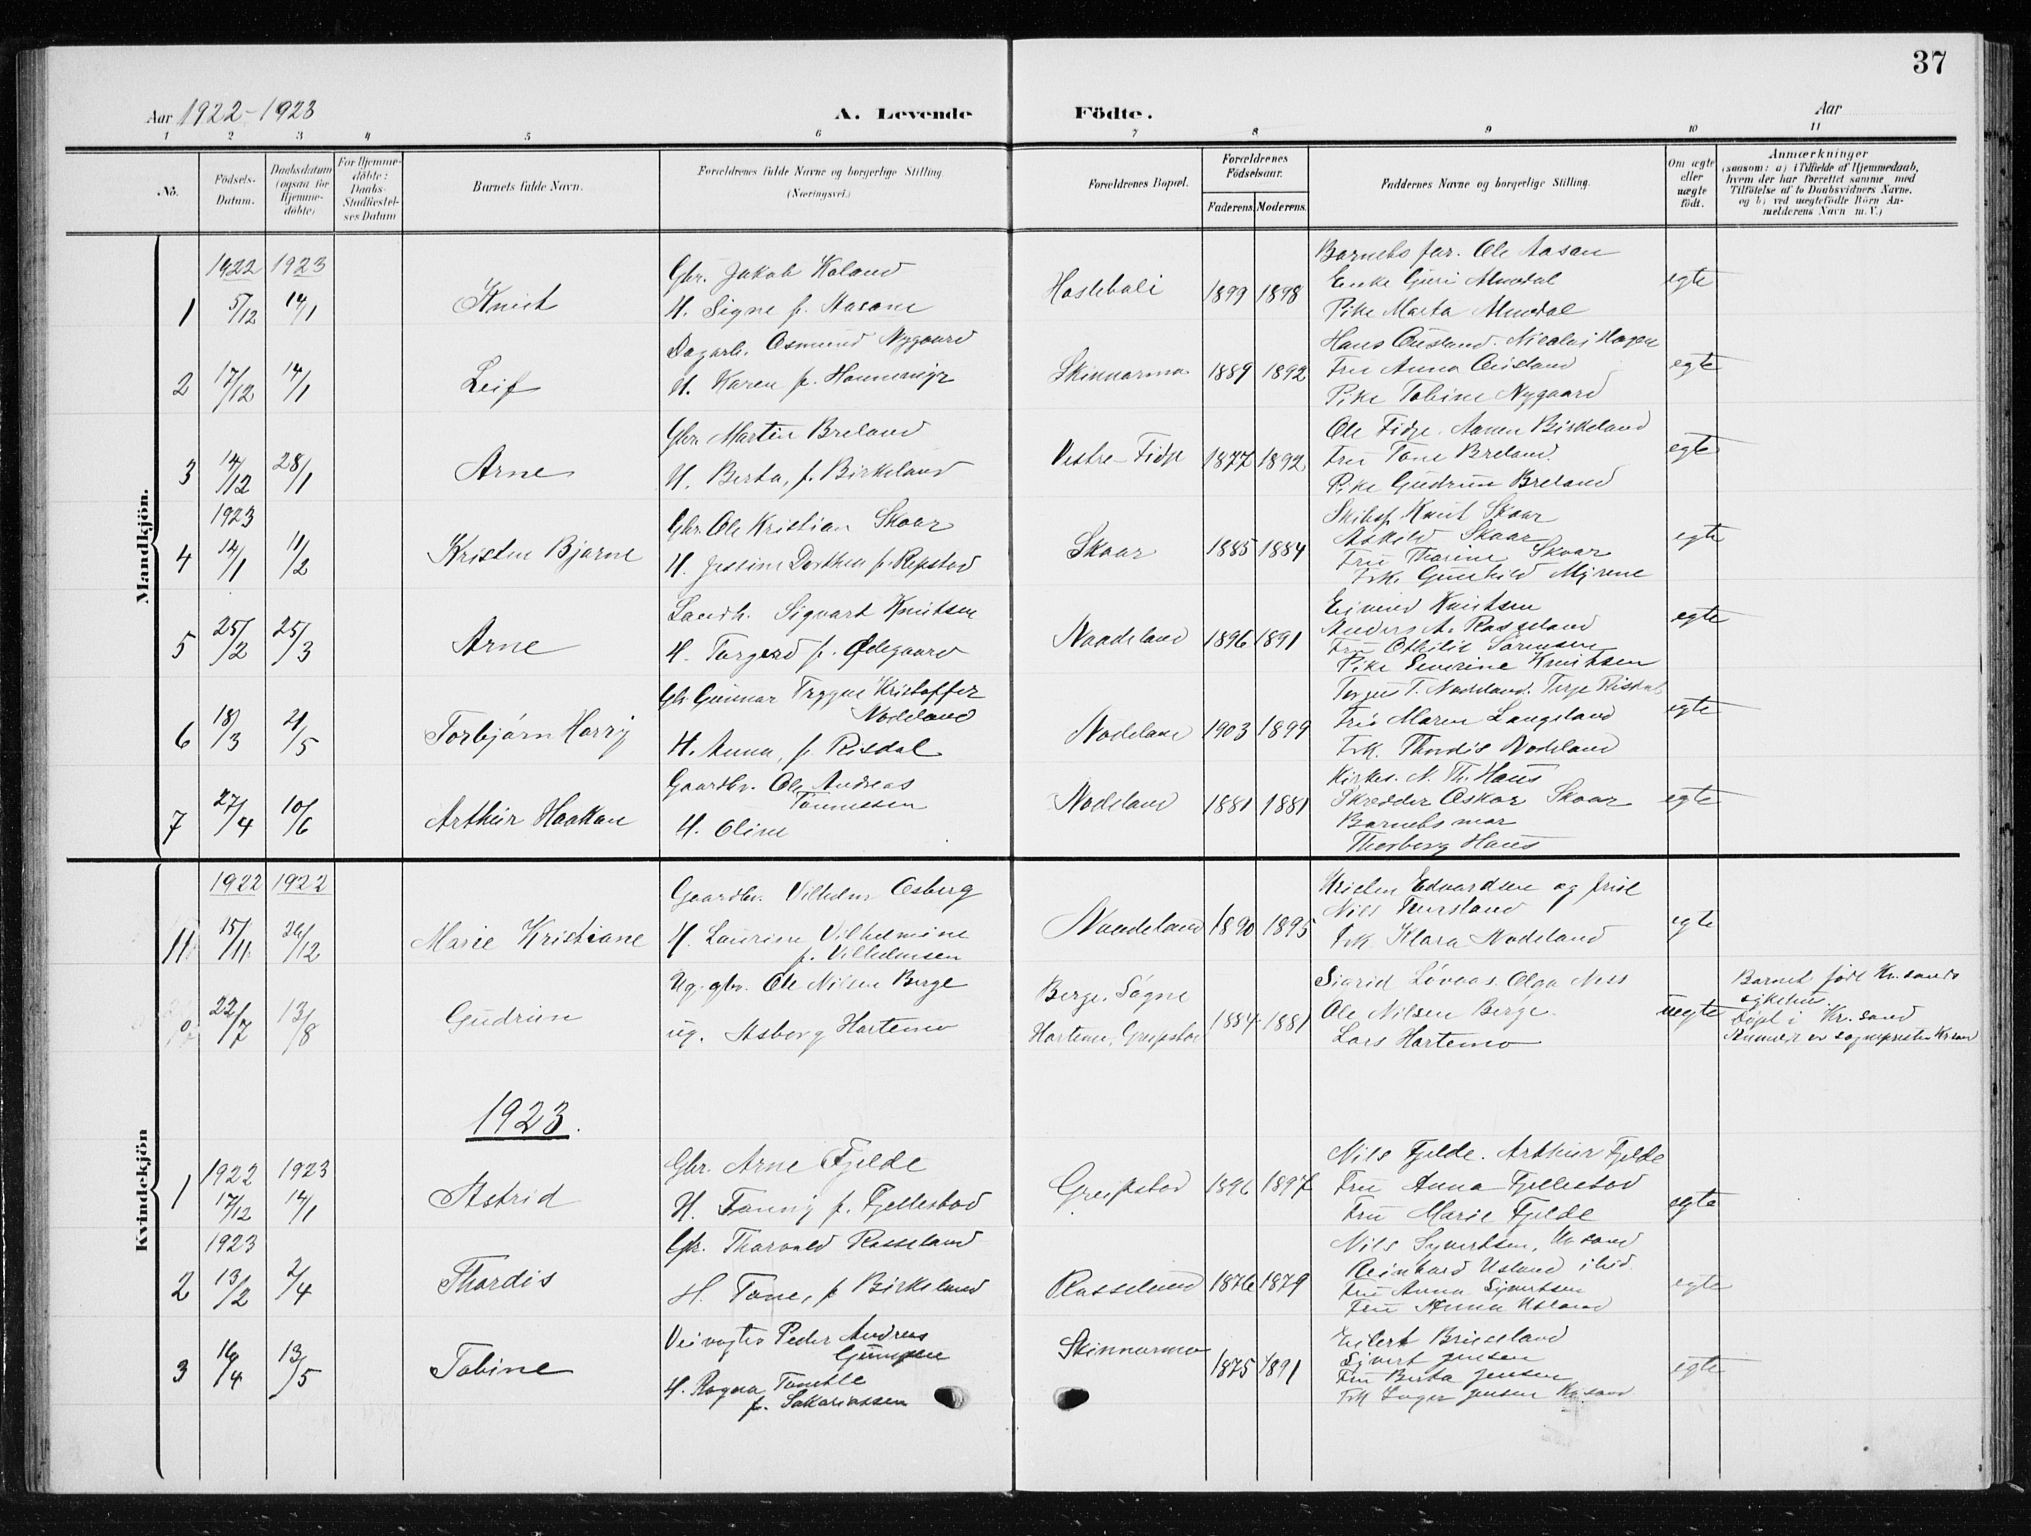 37
Aar 1922-1923
A. Levende Födte.
Aar
1 2 3 4 5 6 7 8 9 10 11
No. Födsels-Datum. Daabsdatum (ogsaa for Hjemmedöbte) For Hjemmedöbte: Daabs-Stadfæstelses Datum Barnets fulde Navn. Forældrenes fulde Navne og borgerlige Stilling (Næringsvei.) Forældrenes Bopæl. Forældrenes Födselsaar. Faderens. Moderens. Faddernes Navne og borgerlige Stilling. Om ægte eller uægte födt. Anmærkninger (saasom: a) i Tilfælde af Hjemmedaab, hvem der har forrettet samme med Tilföielse af to Daabsvidners Navne, og b) ved uægtefödte Börn Anmelderens Navn m. V.)
Mandkjön.
1922 1923
Gbr. Jakob Kaland
Barnets far. Ole Aasan
1 5/12 14/1 Knut
H. Signe f. Aasane
Hastebali 1899 1898
Enke Guri Almedal
egte
Pike Marta Almedal
Dagarb. Osmund Nygaard
Hans Ousland. Nicolai Hagen
2 17/12 14/1 Leif
H. Karen f. Hannemyr
Skinnarmo 1889 1892
Fru Anna Ousland
egte
Pike Tobine Nygaard
Gbr. Martin Breland
Ole Fidje. Aanen Birkeland
3 14/12 28/1 Arne
H. Berta, f. Birkeland
Vestre-Fidje 1877 1892
Fru Tone Breland
egte
Pike Gudrun Breland
1923
Gbr. Ole Kristian Skaar
Skibsf. Knut Skaar
4 14/1 11/2 Kristen Bjarne
H. Jessine Dorthea f. Repstad
Skaar 1885 1884
Askild Skaar
egte
Fru Thorine Skaar
Frk. Gunhild Myrene
Landh. Sigvart Knutsen
Eivind Knutsen
5 25/2 25/3 Arne
H. Torgerd f. Ødegaard
Naadeland 1896 1891
Anders A. Rosseland
egte
Fru Othilie Sørensen
Pike Severine Knutsen
Gbr. Gunnar Trygve Kristoffer Nodeland
Torjus T. Nodeland. Terje Risdal
6 18/3 21/5 Torbjørn Harry
H. Anna, f. Risdal
Nodeland 1903 1899
Fru Maren Langeland
egte
Frk. Thordis Nodeland
Gaardbr. Ole Andreas Tønnessen
Kirkes. N. Th. Haus
7 27/4 10/6 Arthur Haakon
H. Oline
Nodeland 1881 1881
Skredder Oskar Skaar
egte
Barnets mor
Thorborg Haus
Kvindekjön
1922 1922
Gaardbr. Vilhelm Osberg
Kristen Edvardsen og frue
11 15/11 26/12 Marie Kristiane
H. Laurine Vilhelmine f. Vilhelmsen
Naadeland 1890 1895
Nils Tursland
egte
Frk Klara Nodeland
Ug. gbr. Ole Nilsen Berge
Berge. Søgne
Sigrid Løvaas. Olga Ness
Barnet født Kr.sands sykehus.
22/7 13/8 Gudrun
ug. Asborg Hartemo
Hartemo, Greipstad 1884 1881
Ole Nilsen Berge.
uegte
Døpt i Kr.sand
Lars Hartemo
Anmeldt av sogneprest Kr.sand
1923.
Gbr. Arne Fjelde
Nils Fjelde. Arthur Fjelde
1 1922 17/12 1923 14/1 Astrid
H. Fanny f. Fjellestad
Greipstad 1896 1897
Fru Anna Fjellestad
egte
Fru Marie Fjelde
1923
Gbr. Thorvald Rosseland
Nils Syvertsen, Kr.sand
2 13/2 2/4 Thordis
H. Tone, f. Birkeland
Rosseland 1876 1879
Reinhard Usland ibid.
egte
Fru Anna Syvertsen
Fru Anna Usland
Veivogter Peder Andreas Gumpen
Eilert Brusland
3 16/4 13/5 Tobine
H. Ragna Tomille f. Sakariassen
Skinnarmo 1875 1891
Syvert Jensen
egte
Fru Berta Jensen
Frk Inger Jensen Kr.sand